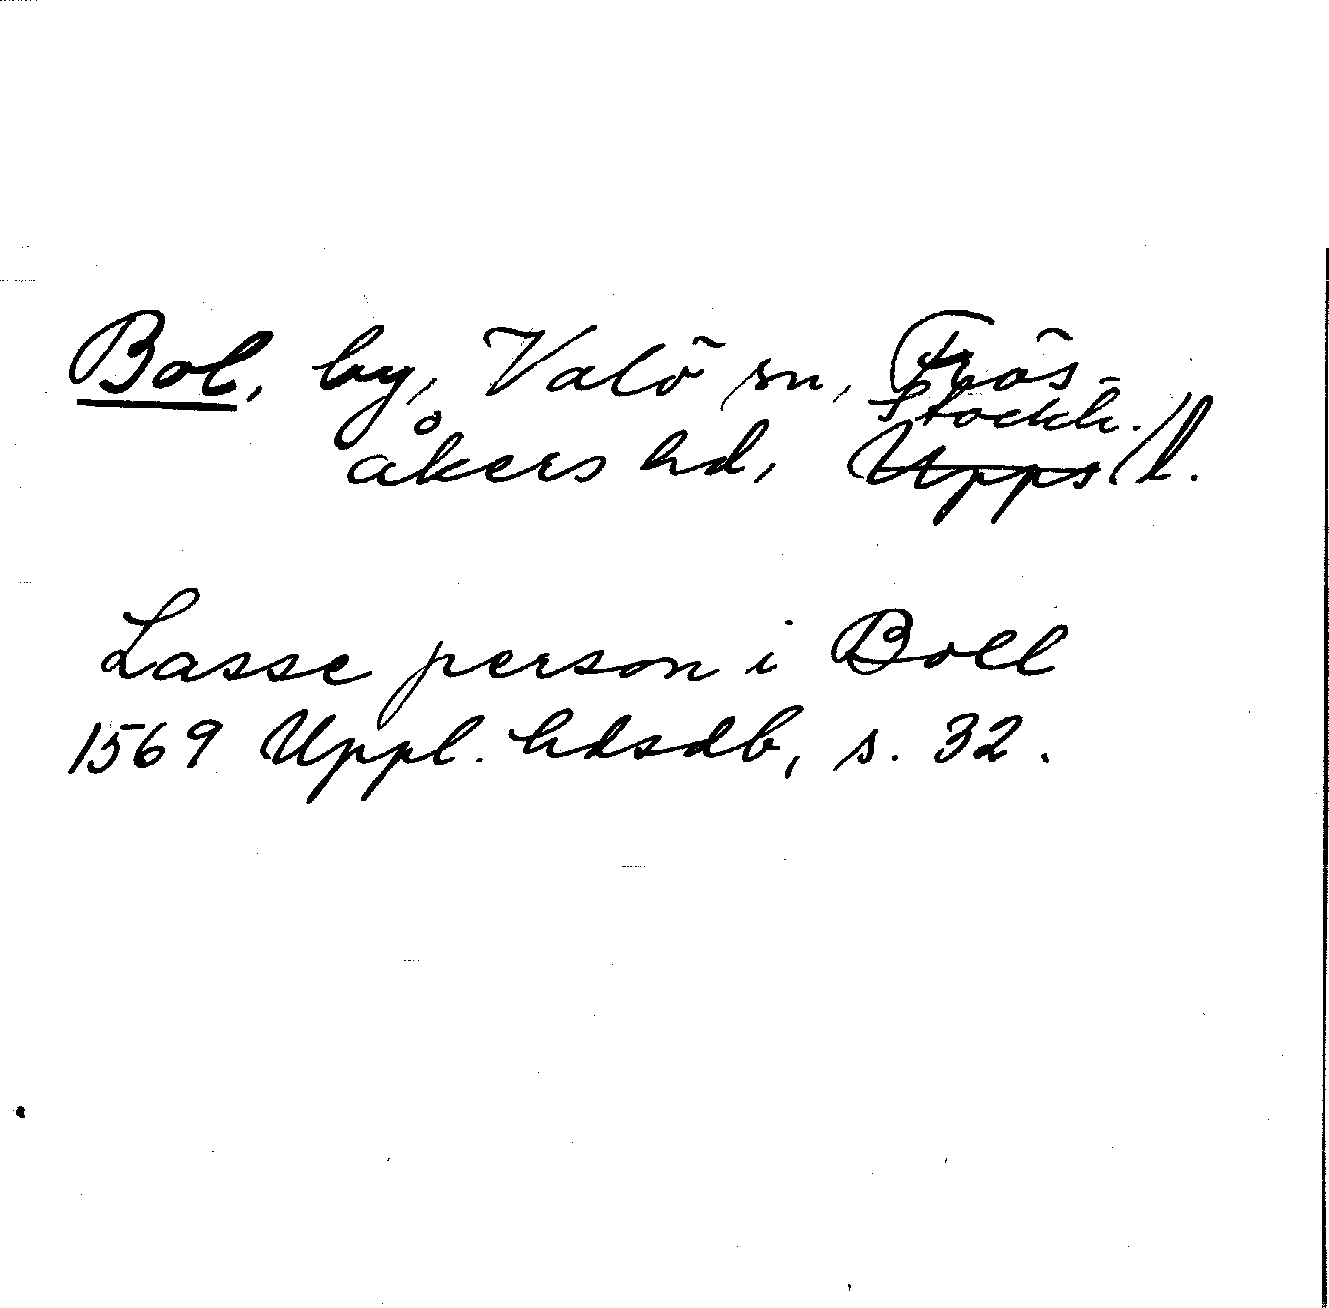 Bol, by, Valö sn, Frös-
Stockh.
åkers hd, Upps l.
Lasse person i Boll
1569 Uppl. hdsdb, s. 32.